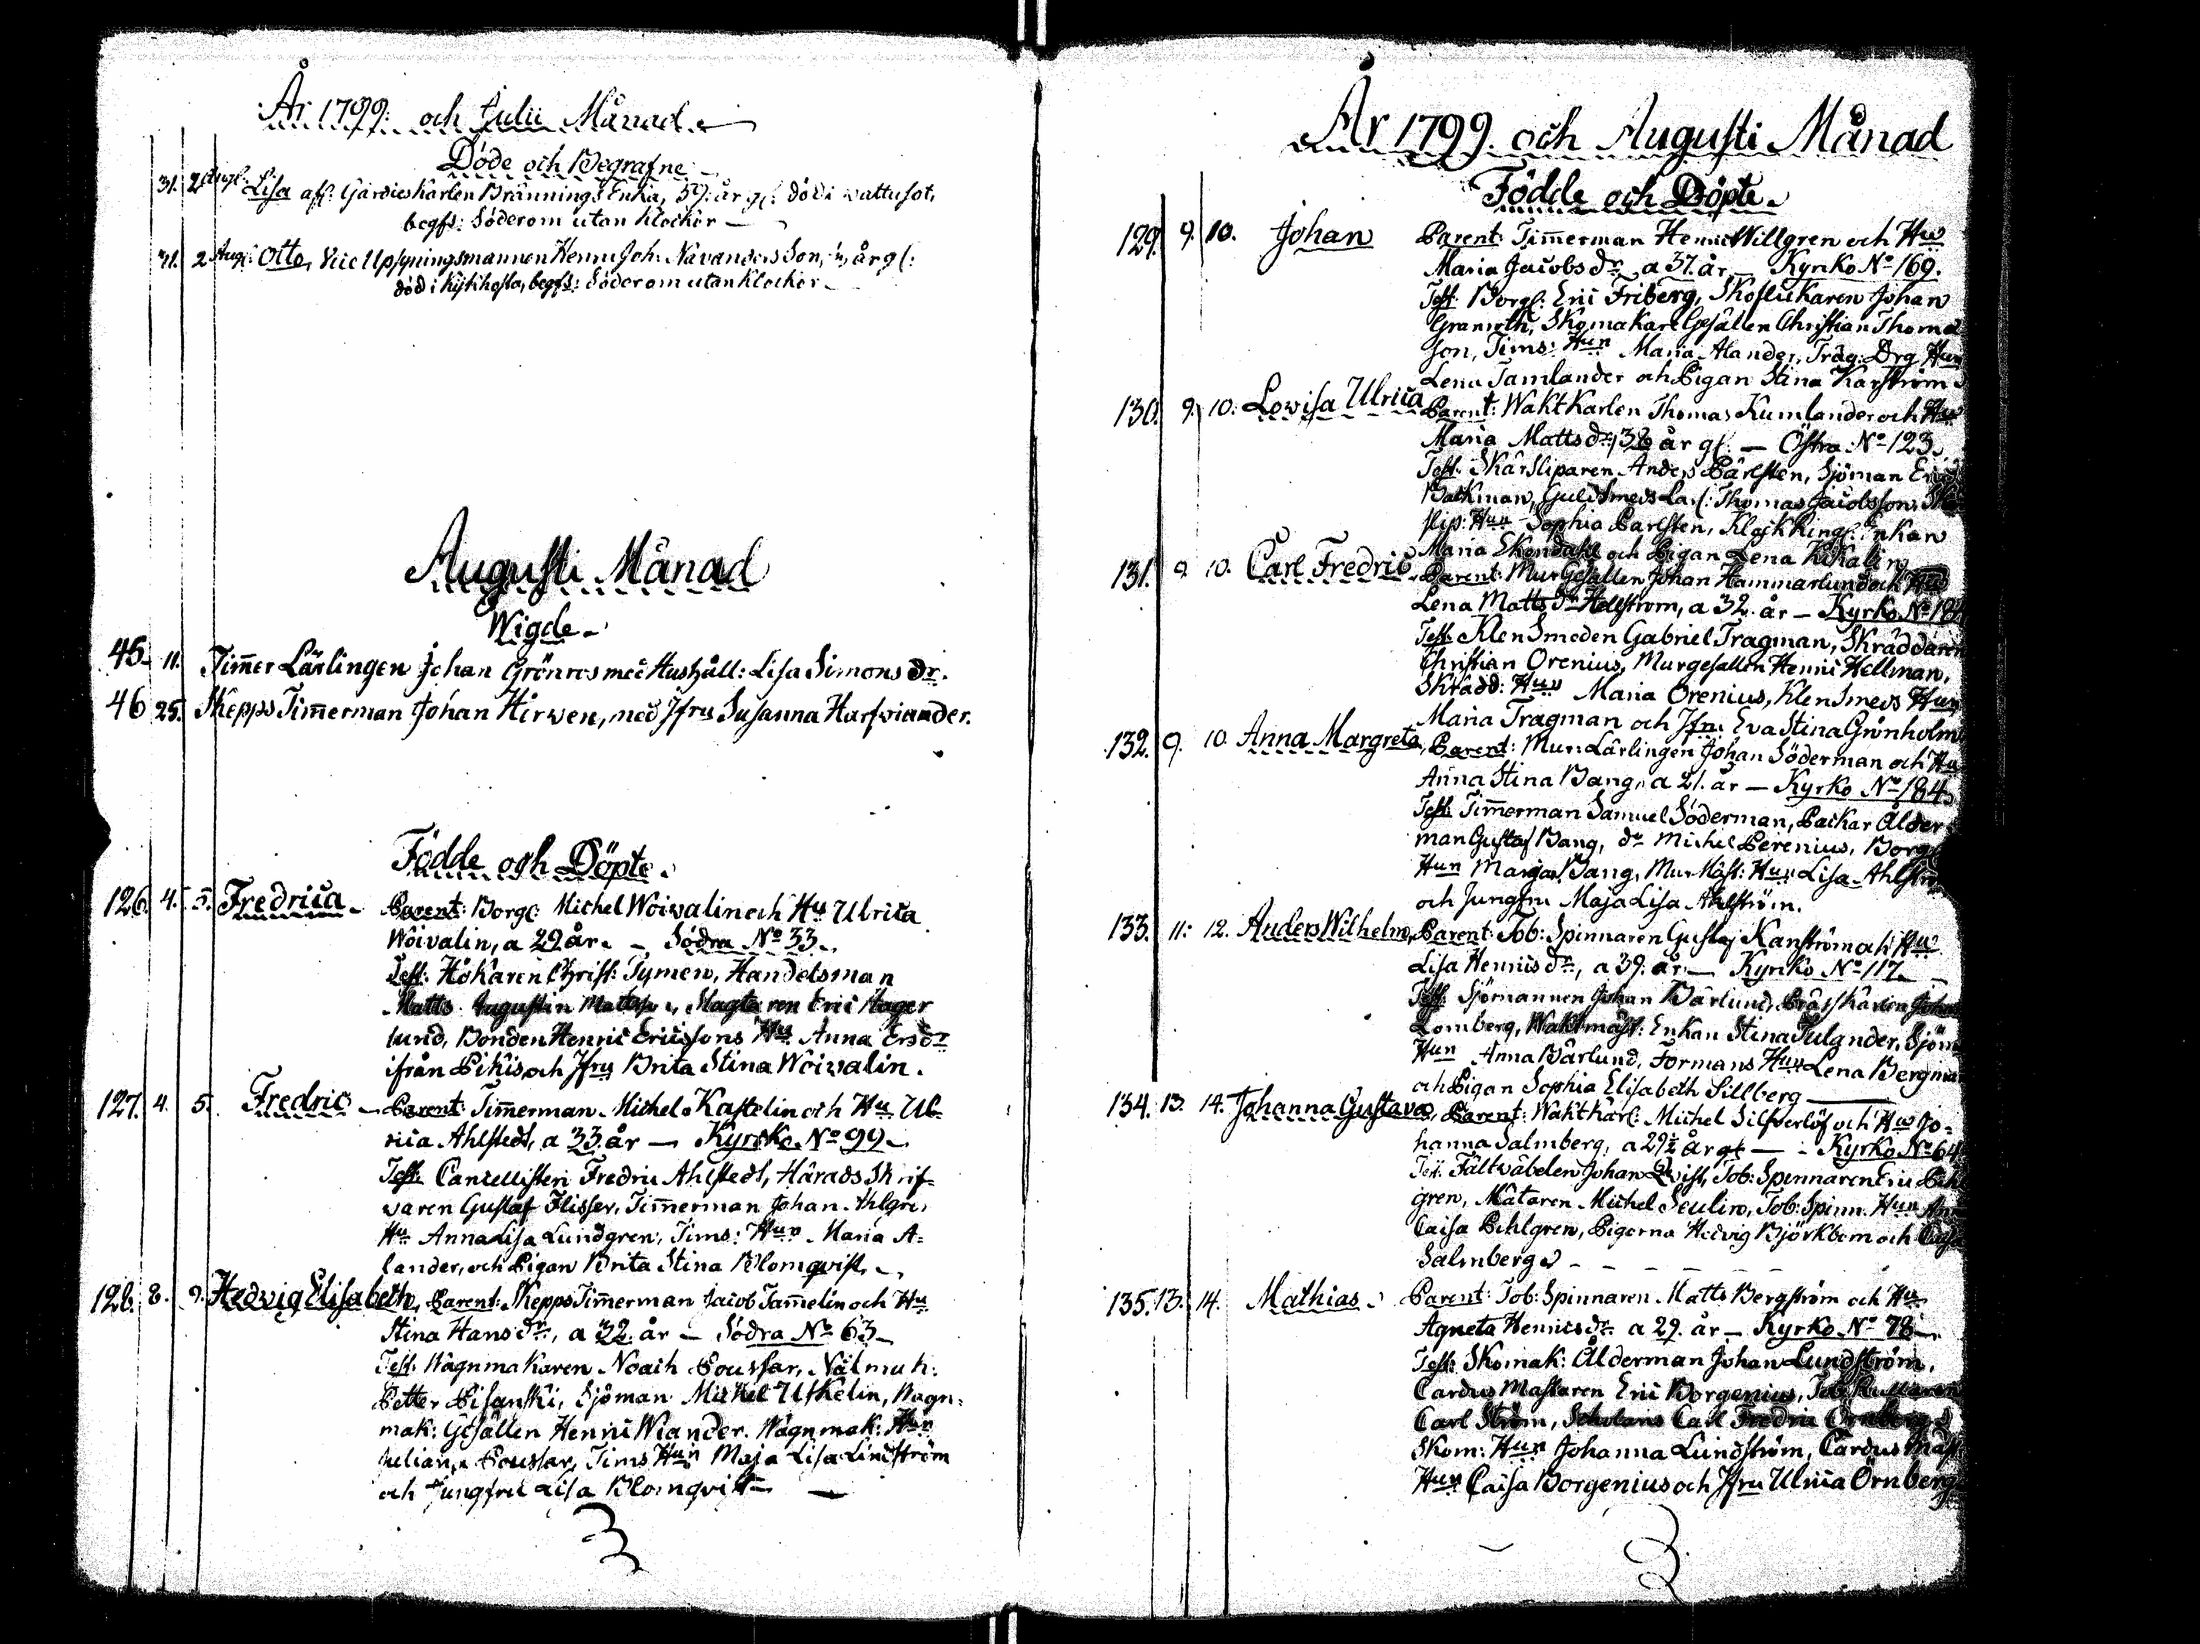 År 1799. och Julii Månad.
Döde och Begrafne
31. 2 Aug: Lisa afl: Gardieskarlen Brännings Enka, 59. år gl: död i wattusot,
begfs: Söderom utan Klockor —
31. 2 Aug: Otto, Vice Upsyningsmannen Henric Joh: Navanders Son, ½ år gl:
död i Kjkhosta, begfs: Söderom utan Klockor —
Augusti Månad
Wigde
45. 11. Tim̅er Lärlingen Johan Grönros med Hushåll: Lisa Simons dr.
46 25. Skepps Tim̅erman Johan Hirwen, med Jfru Susanna Harfviander.
Födde och Döpte.
126. 4. 5. Fredrica. Parent: Borg: Michel Woivalin och Hu Ulrica
Woivalin, a 29 år. — Södra No 33.
Test: Hökaren Christ: Tymen, Handelsman
Matts Augustin Slagtaren Eric Hager
lund, Bonden Henric Ericssons Hu Anna Ersdr
ifrån Pikis och Jfru Brita Stina Woivalin.
127. 4. 5. Fredric — Parent: Tim̅erman Michel Kastelin och Hu Ul-
rica Ahlstedt, a 33. år — Kyrko No 99.
Test: Cancellisten Fredric Ahlstedt, Härads Skrif-
waren Gustaf Flisser, Tim̅erman Johan Ahlgren,
Hu Anna Lisa Lundgren, Tims: Hun Maria A-
lander, och Pigan Brita Stina Blomqvist.
128. 8. 9. Hedvig Elisabeth, Parent: Skepps Tim̅erman Jacob Tam̅elin och Hu
Stina Hans dr, a 32. år — Södra No 63
Test: Wagnmakaren Noach Poussar, Nålmak:
Petter Pisanski, Sjöman Michel Uthelin, Wagn-
mak: Gesällen Henric Wiander. Wagnmak: Hun
Juliana Poussar, Tims Hun Maja Lisa Lindström
och Jungfru Lisa Blomqvist —
År 1799. och Augusti Månad
Födde och Döpte.
129. 9. 10. Johan Parent: Tim̅erman Henric Willgren och Hu
Maria Jacobs dr, a 37. år — Kyrko No 169.
Test: Borg: Eric Friberg, Skoflickaren Johan
Granroth, Skomakare Gesällen Christian Thomas
son, Tims: Hun Maria Alander, Träg: Drg Hun
Lena Tamlander och Pigan Stina Karström
130. 9. 10. Lovisa Ulrica Parent: Wakt Karlen Thomas Kumlander och Hu
Maria Matts dr, 38 år gl: — Östra No 123.
Test: Skärsliparen Anders Pärlsten, Sjöman Eric
Backman, Guldsmeds Lärl: Thomas Jacobsson, Skär
slip: Hun Sophia Parlsten, Klockring: Enkan
Maria Ekendahl och Pigan Lena Kikalin
131. 9. 10. Carl Fredric. Parent: Mur Gesällen Johan Hammarlund och Hu
Lena Matts dr Hellström, a 32. år — Kyrko No 184
Test: Klen Smeden Gabriel Tragman, Skräddaren
Christian Orenius, Murgesällen Henric Hellman,
Skrädd: Hun Maria Orenius, Klen Smeds Hun
Maria Tragman och Jfru Eva Stina Grönholm
132. 9. 10 Anna Margreta, Parent: Mur: Lärlingen Johan Söderman och Hu
Anna Stina Bang, a 21. år — Kyrko No 184
Test: Tim̅erman Samuel Söderman, Packar Ålder-
man Gustaf Bang, do Michel Perenius, Borg:
Hun Margar: Bang, Mur Mäst: Hun Lisa Ahlström
och Jungfru Maja Lisa Ahlström.
133. 11. 12. Anders Wilhelm, Parent: Tob: Spinnaren Gustaf Kanström och Hu
Lisa Henrics dr, a 39. år — Kyrko No 117.
Test: Sjömannen Johan Bärlund, Johan
Lomberg, Waktmäst: Enkan Stina Julander, Sjöm
Hun Anna Bärlund, Formans Hun Lena Bergman
och Pigan Sophia Elisabeth Sillberg —
134. 13. 14. Johanna Gustava, Parent: Wakt karl: Michel Silfverlöf och Hu Jo-
hanna Salmberg, a 29½ år gl — Kyrko No 64
Test: Fältwäbelen Johan Qvist, Tob: Spinnaren Eric Pihl
gren, Mätaren Michel Seulin, Tob: Spinn. Hun Anna
Caisa Pihlgren, Pigorna Hedvig Björkbom och Caisa
Salmberg
135. 13. 14. Mathias. Parent: Tob: Spinnaren Matts Bergström och Hu
Agneta Henricsdr a 29. år — Kyrko No 78
Test: Skomak: Ålderman Johan Lundström,
Cardus Mästaren Eric Borgenius,
Carl Ström, Scholaris Carl Fredric Örnberg
Skom: Hun Johanna Lundström, Cardus mäst:
Hun Caisa Borgenius och Jfru Ulrica Örnberg